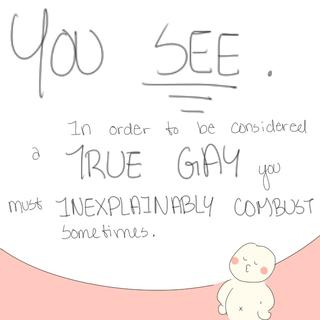 YOU SEE.
In order to be considered
a TRUE GAY you
must INEXPLAINABLY COMBUST
sometimes.